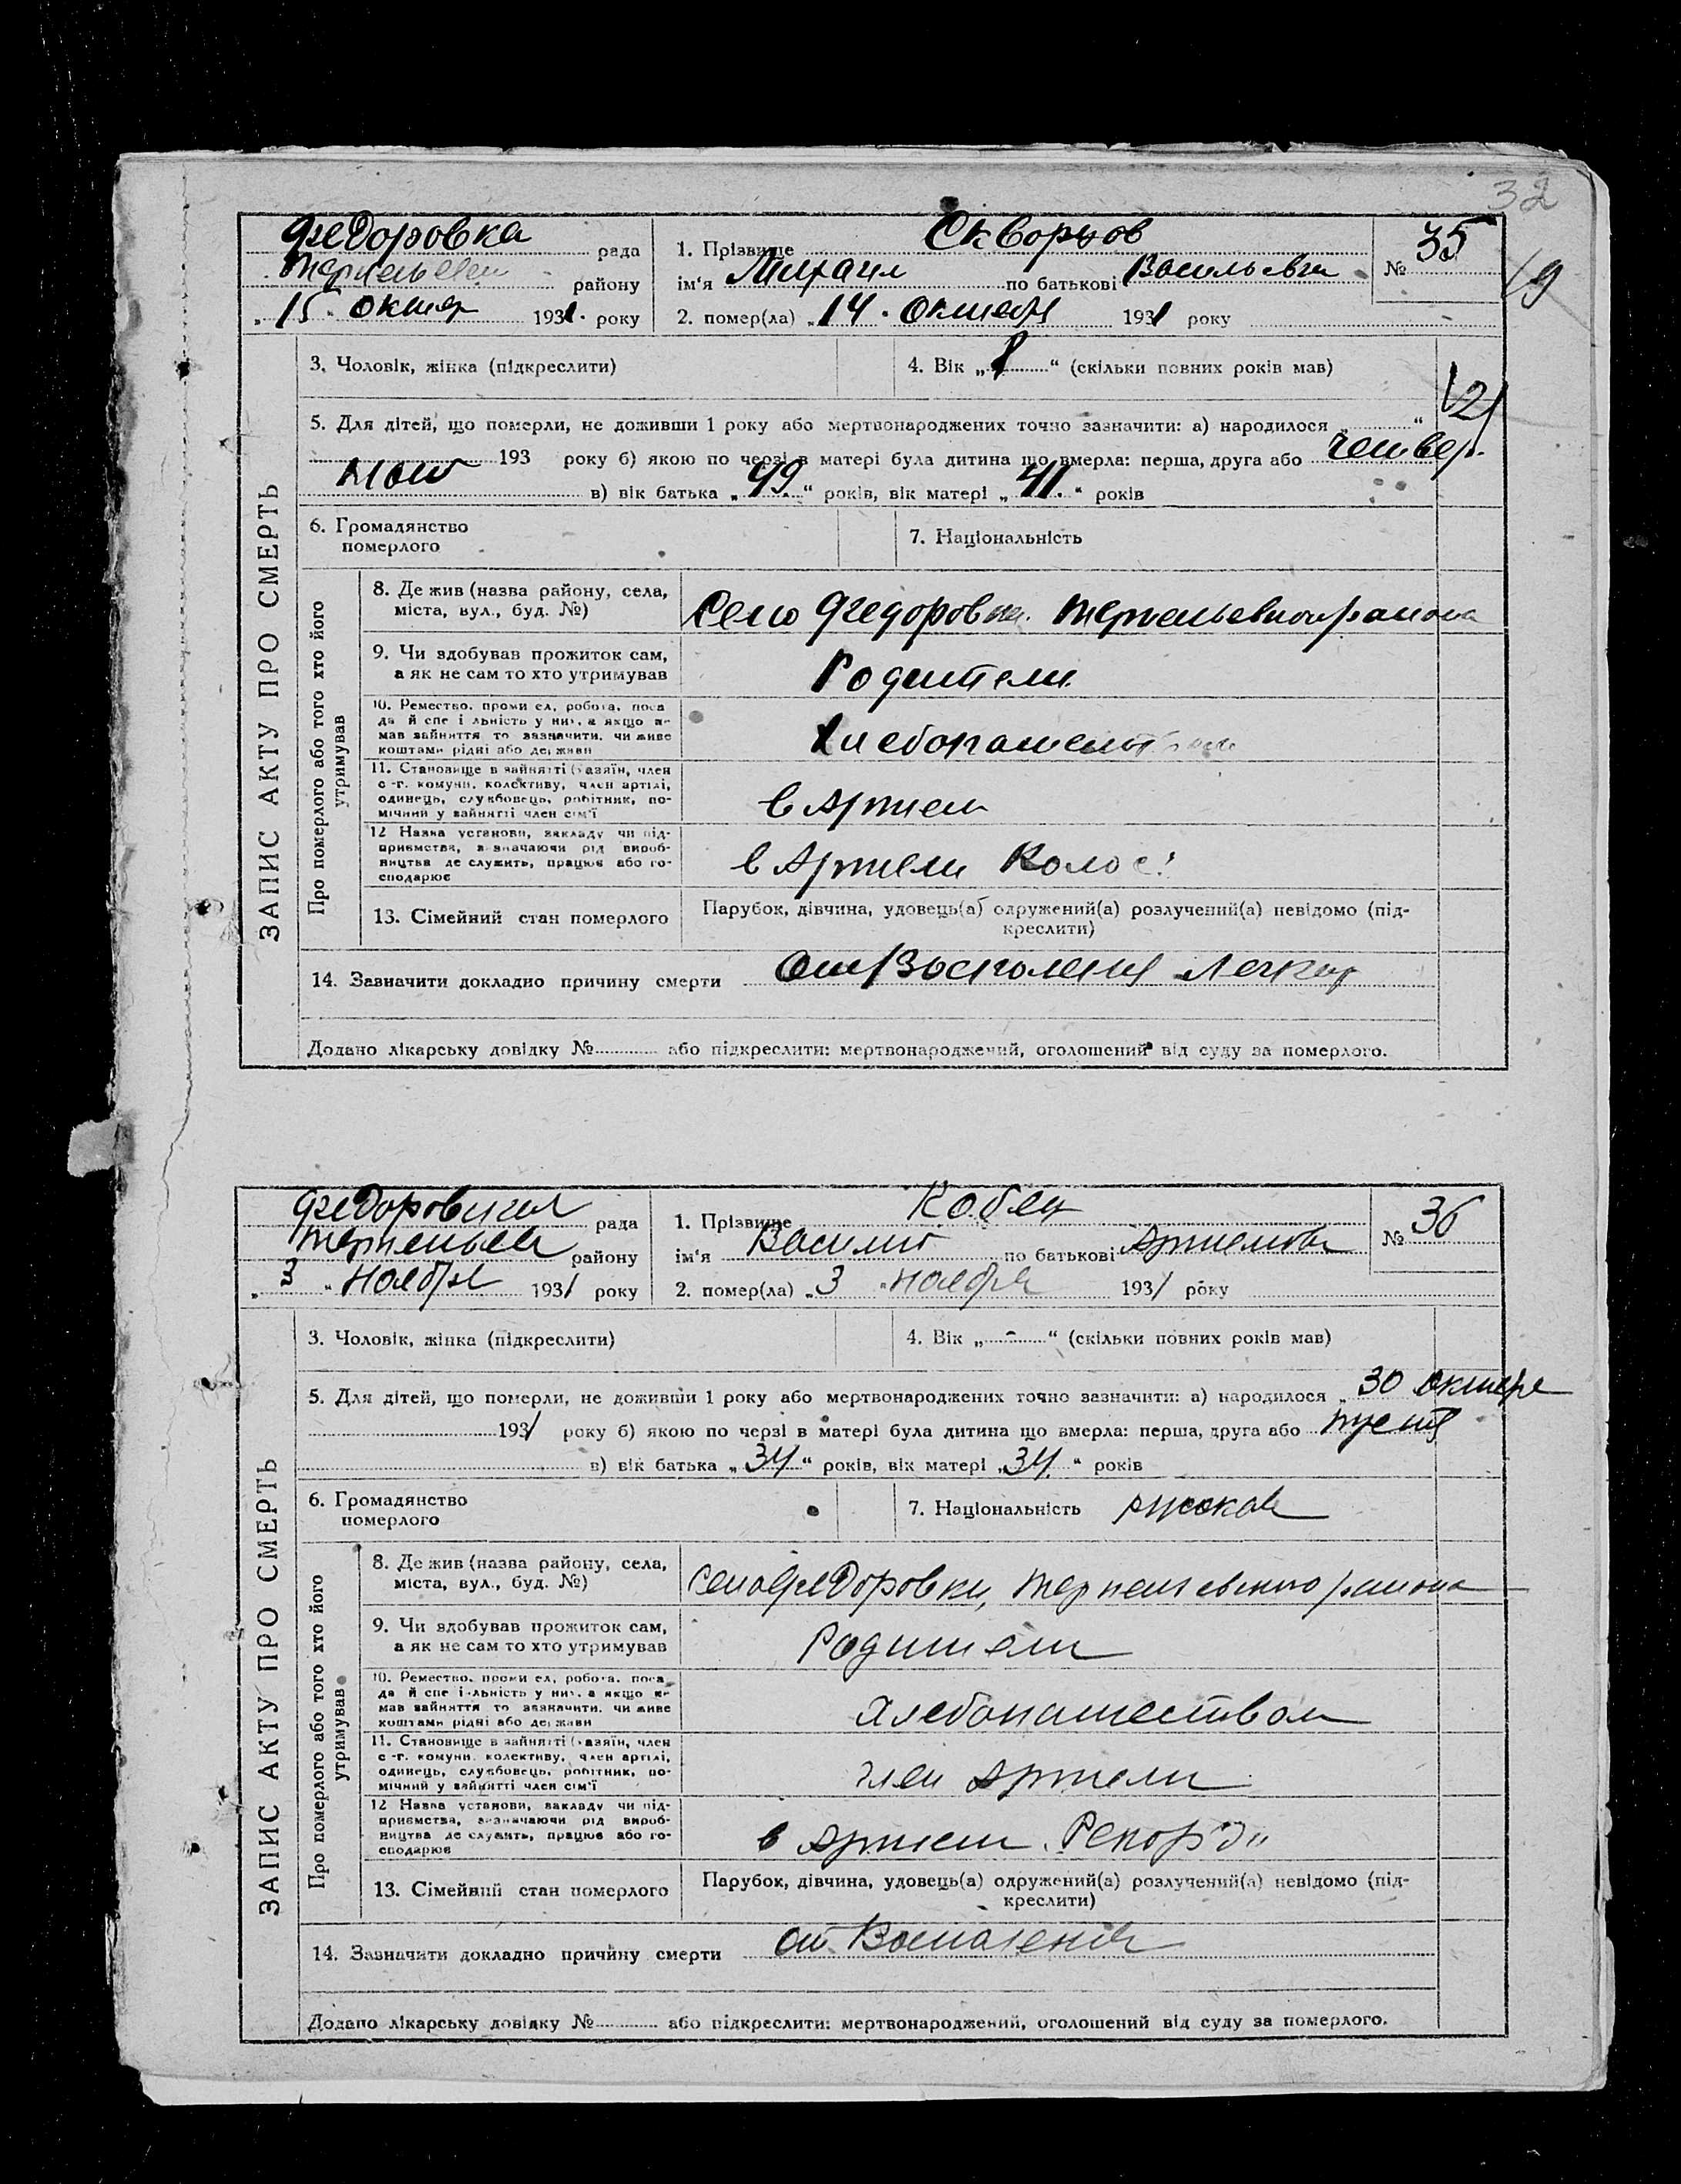 32
Федоровка рада
Терпеньев району
„15" октяр 1931 року
1. Прізвище Скворцов
ім'я Михаил по батькові Васильевич
2. помер(ла) „14" Октября 1931 року
№ 35
19
ЗАПИС АКТУ ПРО СМЕРТЬ
3. Чоловік, жінка (підкреслити)
4. Вік „ “ (скільки повних років мав)
12
5. Для дітей, що померли, не доживши 1 року або мертвонароджених точно зазначити: а) народилося „ “
193 року б) якою по черзі в матері була дитина що вмерла: перша, друга або четвер.
в) вік батька „49“ років, вік матері „41“ років
6. Громадянство
померлого
7. Національність
Про померлого або того хто його
утримував
8. Де жив (назва району, села,
міста, вул., буд. №)
Село Федоровка Терпеньевского района
9. Чи здобував прожиток сам,
а як не сам то хто утримував
Родители
10. Ремество, проми ел, робота, поса
да й спе і льність у них, а якщо н-
мав зайняття то зазначити, чи живе
коштами рідні або держави
Хлебопашеством
11. Становище в зайнятті (хазяїн, член
с-г. комуни, колективу, член артілі,
одинець, службовець, робітник, по-
мічний у зайнятті член сім'ї
в Артели
12 Назва установи, закладу чи під-
приємства, зазначаючи рід вироб-
ництва де служить, працює або го-
сподарює
в Артели Колос
13. Сімейний стан померлого
Парубок, дівчина, удовець(а) одружений(а) розлучений(а) невідомо (під-
креслити)
14. Зазначити докладно причину смерти От Воспаления Легких
Додано лікарську довідку № або підкреслити: мертвонароджений, оголошений від суду за померлого.
Федоровская рада
Терпеньев району
„3“ Ноября 1931 року
1. Прізвище Кобец
ім'я Василий по батькові Артемов
2. помер(ла) „3 “Ноября 1931 року
№ 36
ЗАПИС АКТУ ПРО СМЕРТЬ
3. Чоловік, жінка (підкреслити)
4. Вік „-“ (скільки повних років мав)
5. Для дітей, що померли, не доживши 1 року або мертвонароджених точно зазначити: а) народилося „30 октяря
1931 року б) якою по черзі в матері була дитина що вмерла: перша, друга або третя
в) вік батька „34“ років, вік матері „34“ років
6. Громадянство
померлого
7. Національність русская
Про померлого або того хто його
утримував
8. Де жив (назва району, села,
міста, вул., буд. №)
село Федоровки, Терпеньевского района
9. Чи здобував прожиток сам,
а як не сам то хто утримував
Родители
10. Ремество, проми ел, робота, поса
да й спе і льність у них, а якщо н-
мав зайняття то зазначити, чи живе
коштами рідні або держави
Хлебопашеством
11. Становище в зайнятті (хазяїн, член
с-г. комуни, колективу, член артілі,
одинець, службовець, робітник, по-
мічний у зайнятті член сім'ї
член Артели
12 Назва установи, закладу чи під-
приємства, зазначаючи рід вироб-
ництва де служить, працює або го-
сподарює
в Артели „Рекорд"
13. Сімейний стан померлого
Парубок, дівчина, удовець(а) одружений(а) розлучений(а) невідомо (під-
креслити)
14. Зазначити докладно причину смерти от Воспаления
Додано лікарську довідку № або підкреслити: мертвонароджений, оголошений від суду за померлого.